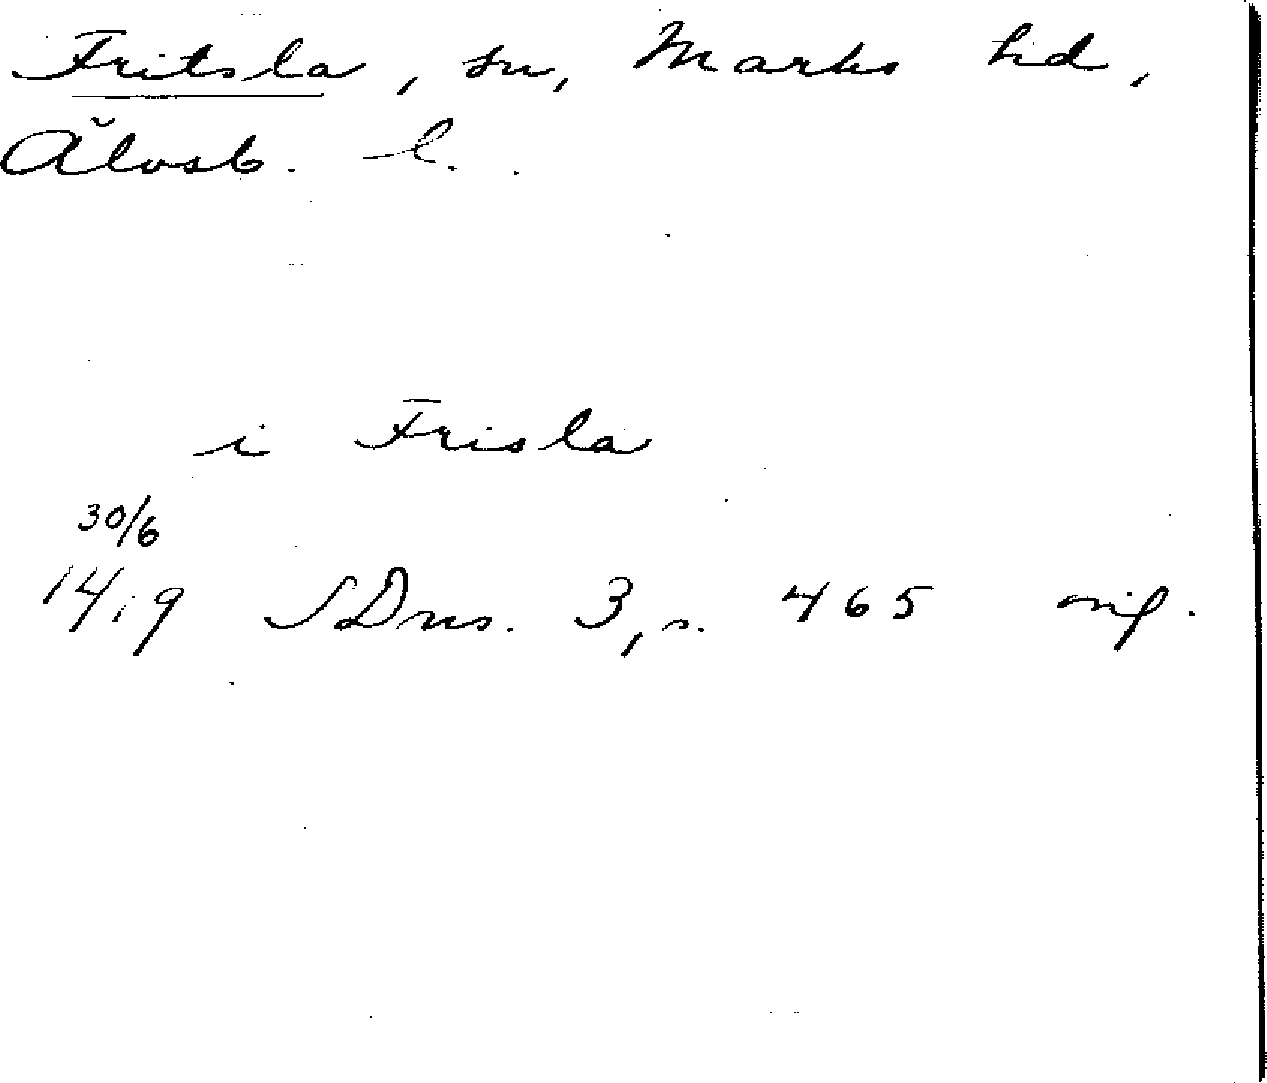 Fritsla, sn, Marks hd,
Älvsb. l.
i Frisla
30/6
1419 SDns. 3, s. 465 orig.